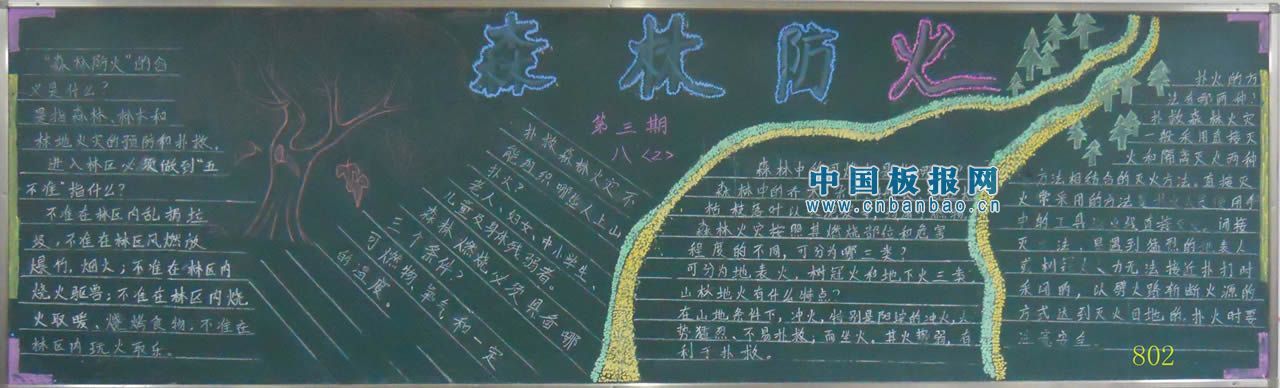 森林防火
第三期
八〈2〉
"森林防火"的含
义是什么？
是指森林、林木和
林地火灾的预防和扑救。
进入林区必须做到"五
不准"指什么？
不准在林区内乱扔垃
圾，不准在林区内燃放
爆竹，烟火；不准在林区内
烧火驱兽；不准在林区内烧
火取暖、烧烤食物，不准在
林区内玩火取乐。
扑救森林火灾不
能组织哪些人上山
扑火？
老人、妇女、中小学生、
儿童及身体残弱者。
森林燃烧必须具备哪
三个条件？
可燃物、氧气和一定
的温度。
森林中的可燃
森林中的乔
枯枝落叶以
森林火灾按照其燃烧部位和危害
程度的不同，可分为哪三类？
可分为地表火，树冠火和地下火三类
山林地火有什么特点？
在山地条件下，冲火，特别是阳坡的冲火，火
势猛烈、不易扑救；而坐火，其火势弱，有
利于扑救。
扑火的方
法有哪两种：
扑救森林火灾
一般采用直接灭
火和隔离灭火两种
方法相结合的灭火方法。直接灭
火常采用的方法
中的工具 间接
灭 法，是遇到猛烈的 表火
或树冠火、 力无法接近扑打时
采用的，以劈火路斩断火源的
方式达到灭火目地的。扑火时要
注意安全
中国板报网
www.cnbanbao.cn
802